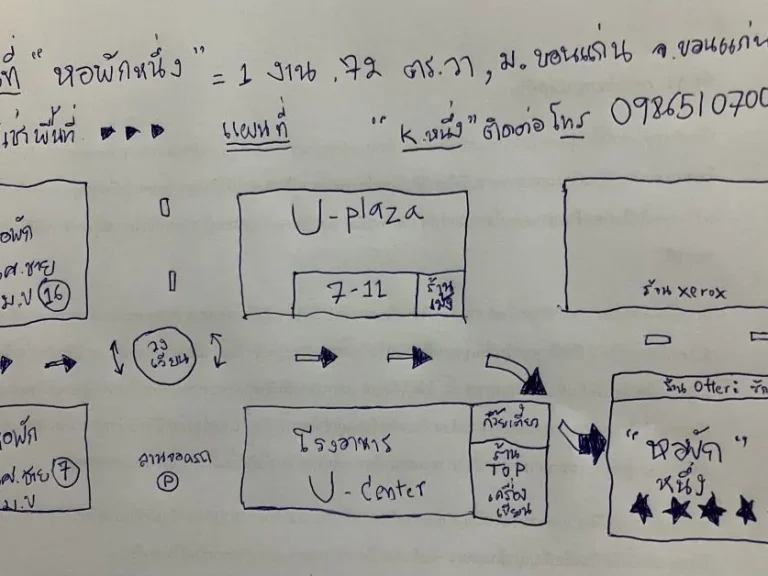 ที่ "หอพักหนึ่ง" = 1 งาน .72 ตร.วา, ม.ขอนแก่น จ.ขอนแก่น
เช่าพื้นที่ แผนที่ "K.หนึ่ง" ติดต่อ โทร 0986510700
หอพัก
ศ.ชาย
ม.ข 16
U-plaza
7-11
ร้าน
ร้าน xerox
วง
เวียน
ร้าน Otteri ซัก
หอพัก
ศ.ชาย 7
ม.ข
ลานจอดรถ
P
โรงอาหาร
U-center
ก๋วยเตี๋ยว
ร้าน
TOP
เครื่อง
เขียน
"หอพัก"
หนึ่ง